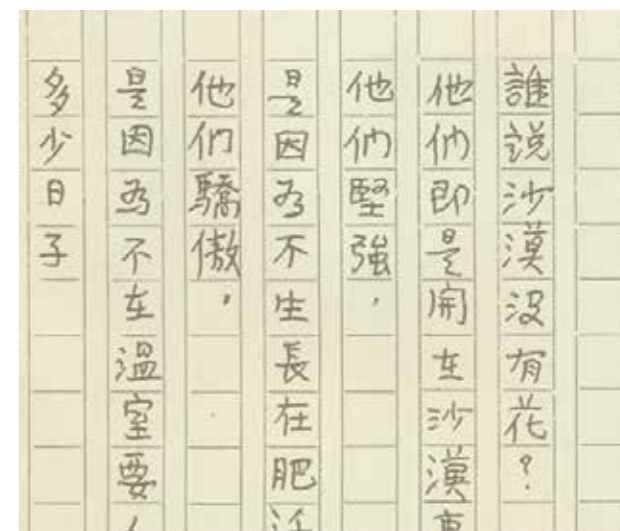 誰說沙漠沒有花?
他們即是開在沙漠
他們堅強,
是因為不生長在肥
他們驕傲,
是因為不在溫室要
多少日子